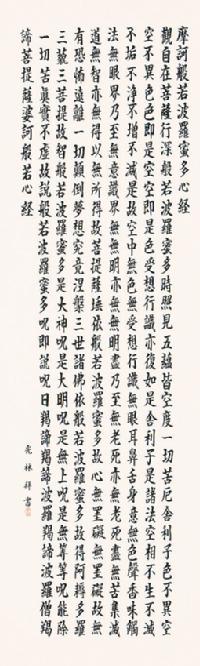 摩訶般若波羅蜜多心經
觀自在菩薩行深般若波羅蜜多時照見五蘊皆空度一切苦厄舍利子色不異空
空不異色色即是空空即是色受想行識亦復如是舍利子是諸法空相不生不滅
不垢不淨不增不減是故空中無色無受想行識無眼耳鼻舌身意無色聲香味觸
法無眼界乃至無意識界無無明亦無無明盡乃至無老死亦無老死盡無苦集滅
道無智亦無得以無所得故菩提薩埵依般若波羅蜜多故心無罣礙無罣礙故無
有恐怖遠離一切顛倒夢想究竟涅槃三世諸佛依般若波羅蜜多故得阿耨多羅
三藐三菩提故智般若波羅蜜多是大神呪是大明呪是無上呪是無等等呪能除
一切苦真實不虛故說般若波羅蜜多呪即說呪曰羯諦羯諦波羅羯諦波羅僧羯
諦菩提薩婆訶般若心經